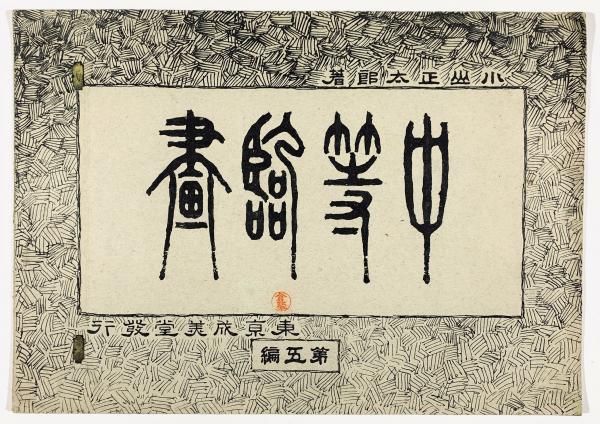 小山正太郎著
中等臨畫
東京成美堂發行
第五編